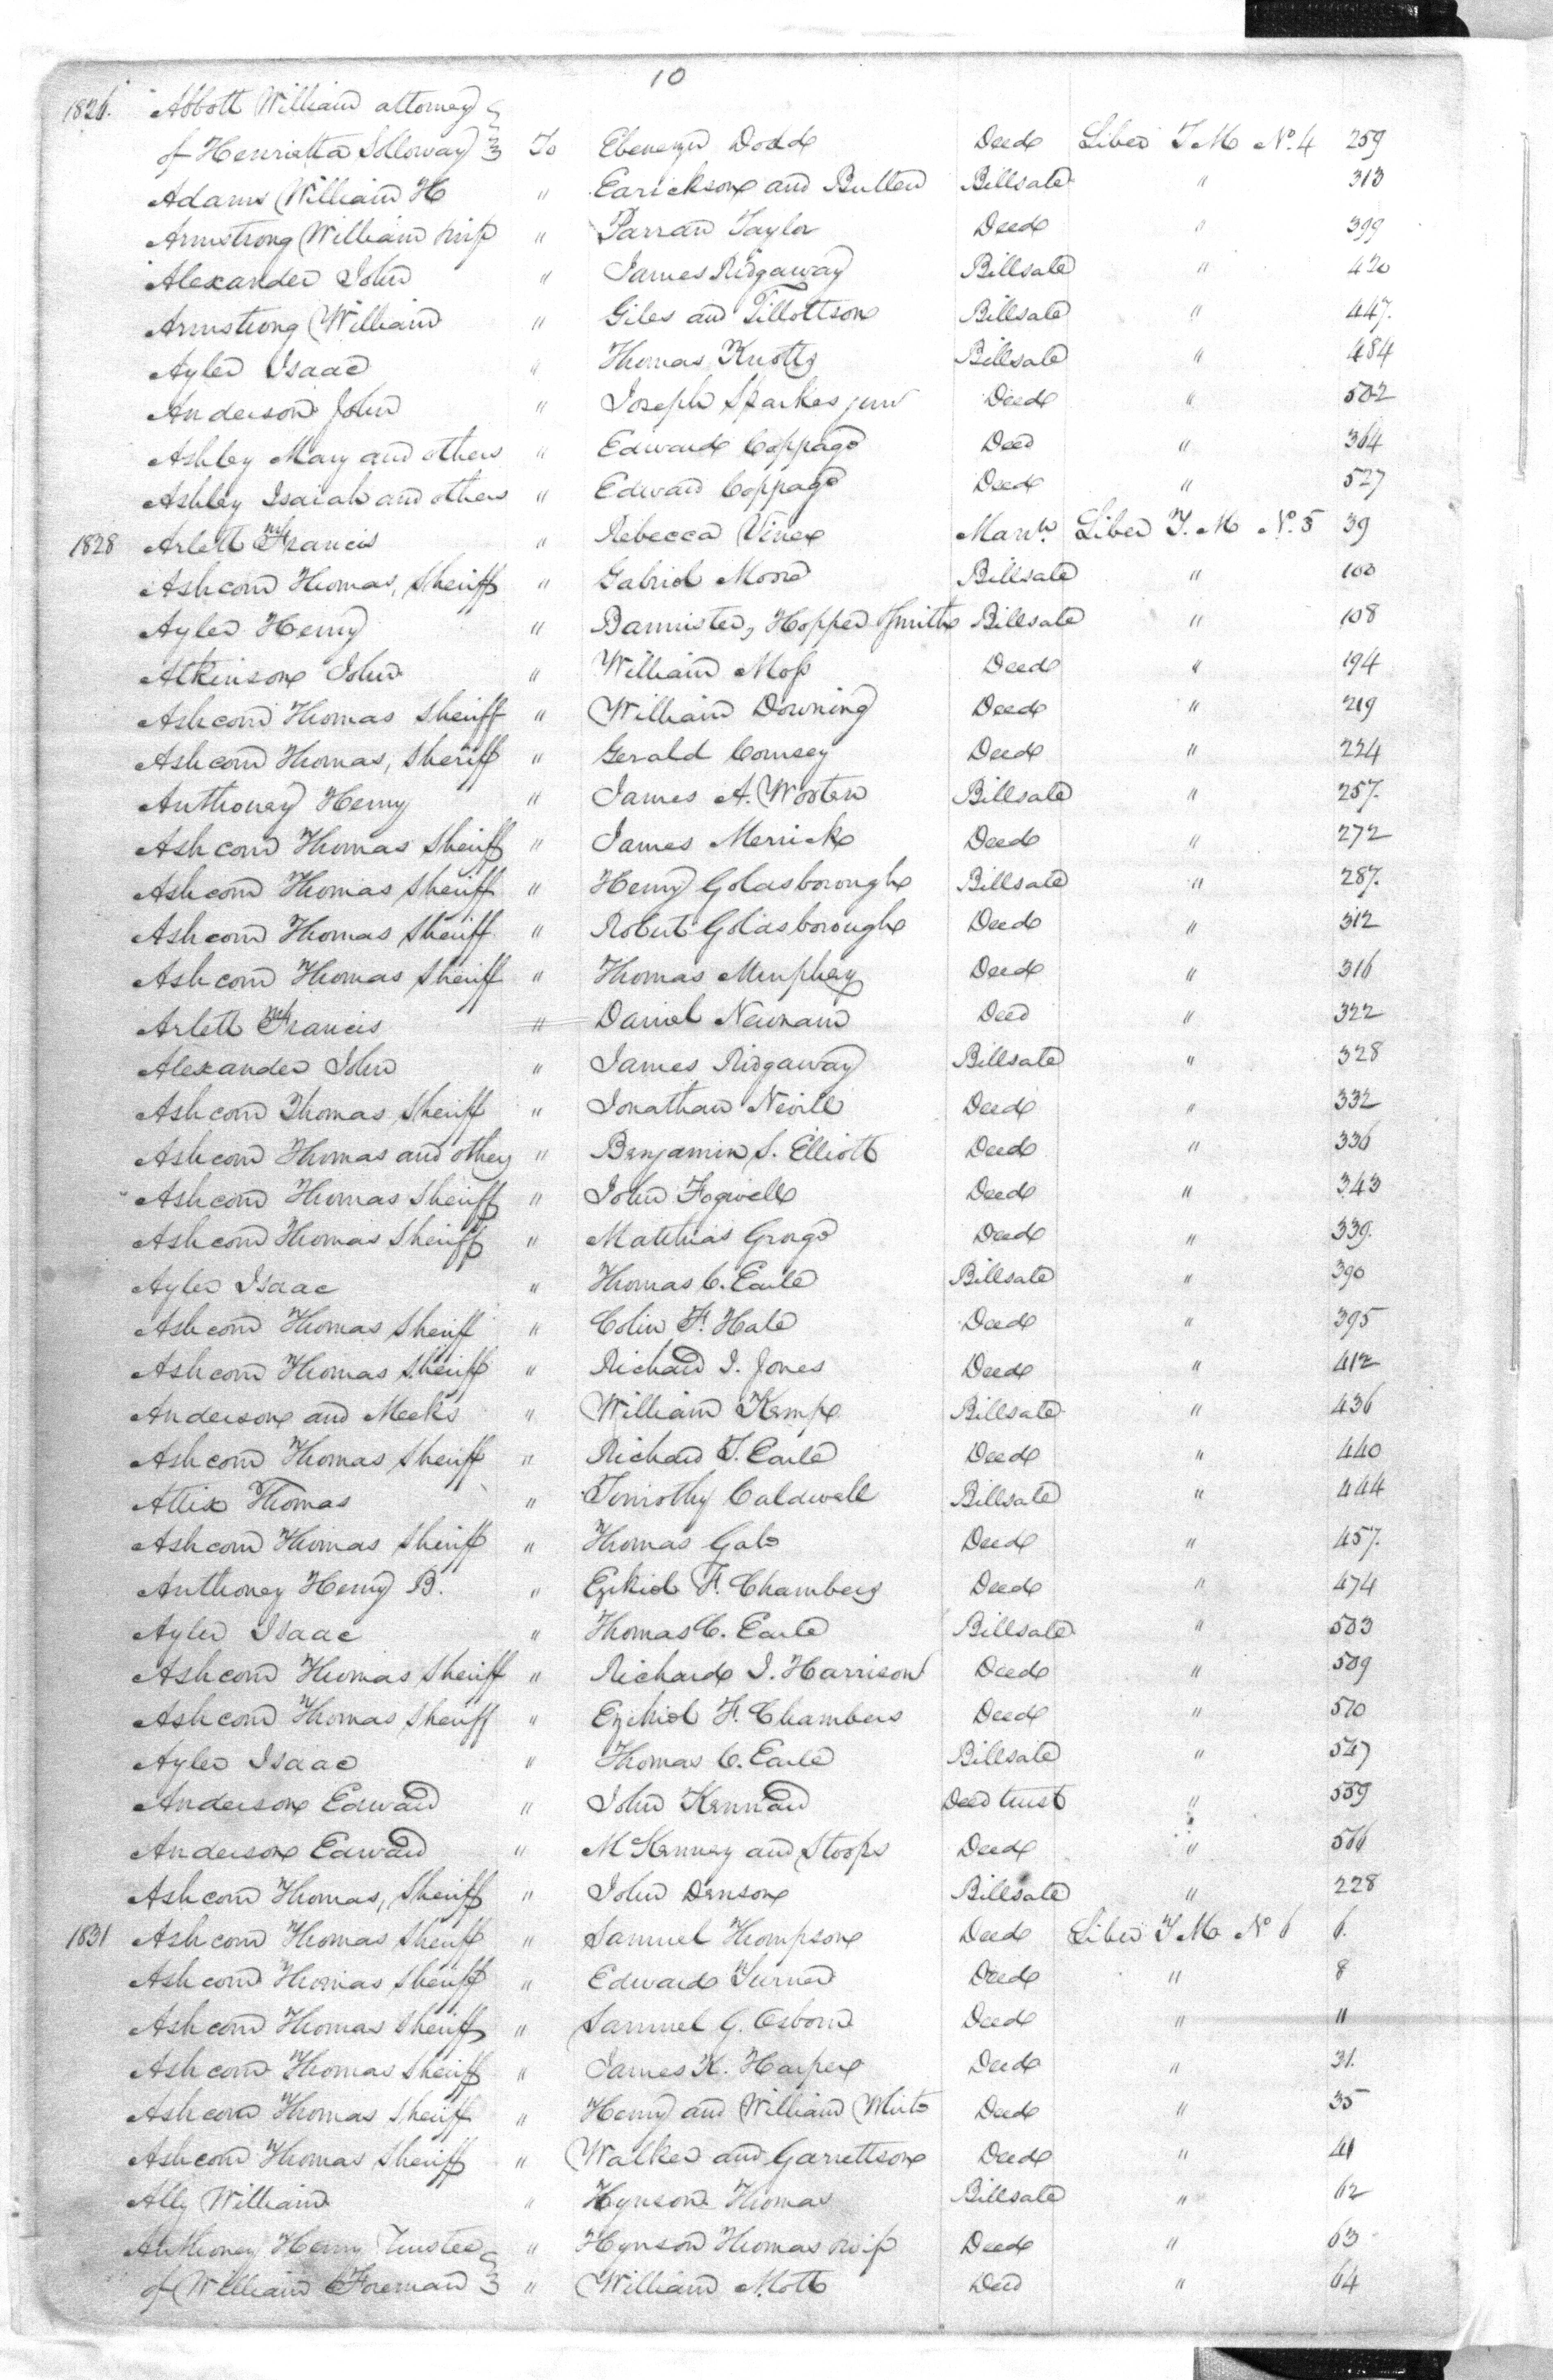 10
1826. Abbott William attorney
of Henrietta Solloway } To Ebenezer Dodd Deed Liber T M No. 4 259
Adams William H " Earickson and Bullen Billsale " 313
Armstrong William " Parran Taylor Deed " 399
Alexander John " James Ridgaway Billsale " 420
Armstrong William " Giles and Tillottson Billsale " 447.
Ayler Isaac " Thomas Knotts Billsale " 484
Anderson John " Joseph Sparkes junr Deed " 502
Ashley Mary and others " Edward Coppage Deed " 364
Ashley Isaiah and others " Edward Coppage Deed " 527
1828 Arlett Francis " Rebecca Vine " Liber T. M No. 5 39
Ashcom Thomas, Sheriff " Gabriel Moore Billsale " 100
Ayler Henry " Bannister, Hopper Smith Billsale " 108
Atkinson John " William Moss Deed " 194
Ashcom Thomas Sheriff " William Downing Deed " 219
Ashcom Thomas, Sheriff " Gerald Coursey Deed " 224
Anthoney Henry " James A. Wooten Billsale " 257.
Ashcom Thomas Sheriff " James Merrick Deed " 272
Ashcom Thomas Sheriff " Henry Goldsborough Billsale " 287.
Ashcom Thomas Sheriff " Robert Goldsborough Deed " 312
Ashcom Thomas Sheriff " Thomas Murphey Deed " 316
Arlett Francis " Daniel Newnam Deed " 322
Alexander John " James Ridgaway Billsale " 328
Ashcom Thomas Sheriff " Jonathan Nevill Deed " 332
Ashcom Thomas and others " Benjamin S. Elliott Deed " 336
Ashcom Thomas Sheriff " John Fogwell Deed " 343
Ashcom Thomas Sheriff " Matthias George Deed " 339.
Ayler Isaac " Thomas C. Earle Billsale " 390
Ashcom Thomas Sheriff " Colin F. Hale Deed " 395
Ashcom Thomas Sheriff " Richard I. Jones Deed " 412
Anderson and Meeks " William Kemp Billsale " 436
Ashcom Thomas Sheriff " Richard T. Earle Deed " 440
Attix Thomas " Timothy Caldwell Billsale " 444
Ashcom Thomas Sheriff " Thomas Gale Deed " 457.
Anthoney Henry B. " Ezekiel F. Chambers Deed " 474
Ayler Isaac " Thomas C. Earle Billsale " 503
Ashcom Thomas Sheriff " Richard I. Harrison Deed " 509
Ashcom Thomas Sheriff " Ezekiel F. Chambers Deed " 510
Ayler Isaac " Thomas C. Earle Billsale " 547
Anderson Edward " John Kennard Deed trust " 559
Anderson Edward " McKenney and Stoops Deed " 566
Ashcom Thomas, Sheriff " John Denson Billsale " 228
1831 Ashcom Thomas Sheriff " Samuel Thompson Deed Liber T M No 6 6.
Ashcom Thomas Sheriff " Edward Turner Deed " 8
Ashcom Thomas Sheriff " Samuel G. Osborn Deed " 11
Ashcom Thomas Sheriff " James K. Harper Deed " 31.
Ashcom Thomas Sheriff " Henry and William White Deed " 35
Ashcom Thomas Sheriff " Walker and Garrettson Deed " 41
Ally William " Hynson Thomas Billsale " 62
Anthoney Henry Trustee " Hynson Thomas Deed " 63
of William Foreman } " William Mott Deed " 64